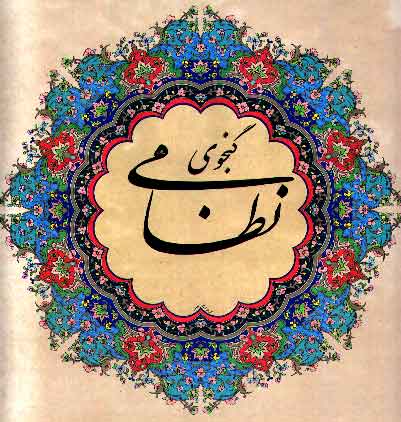 نظامی
گنجوی